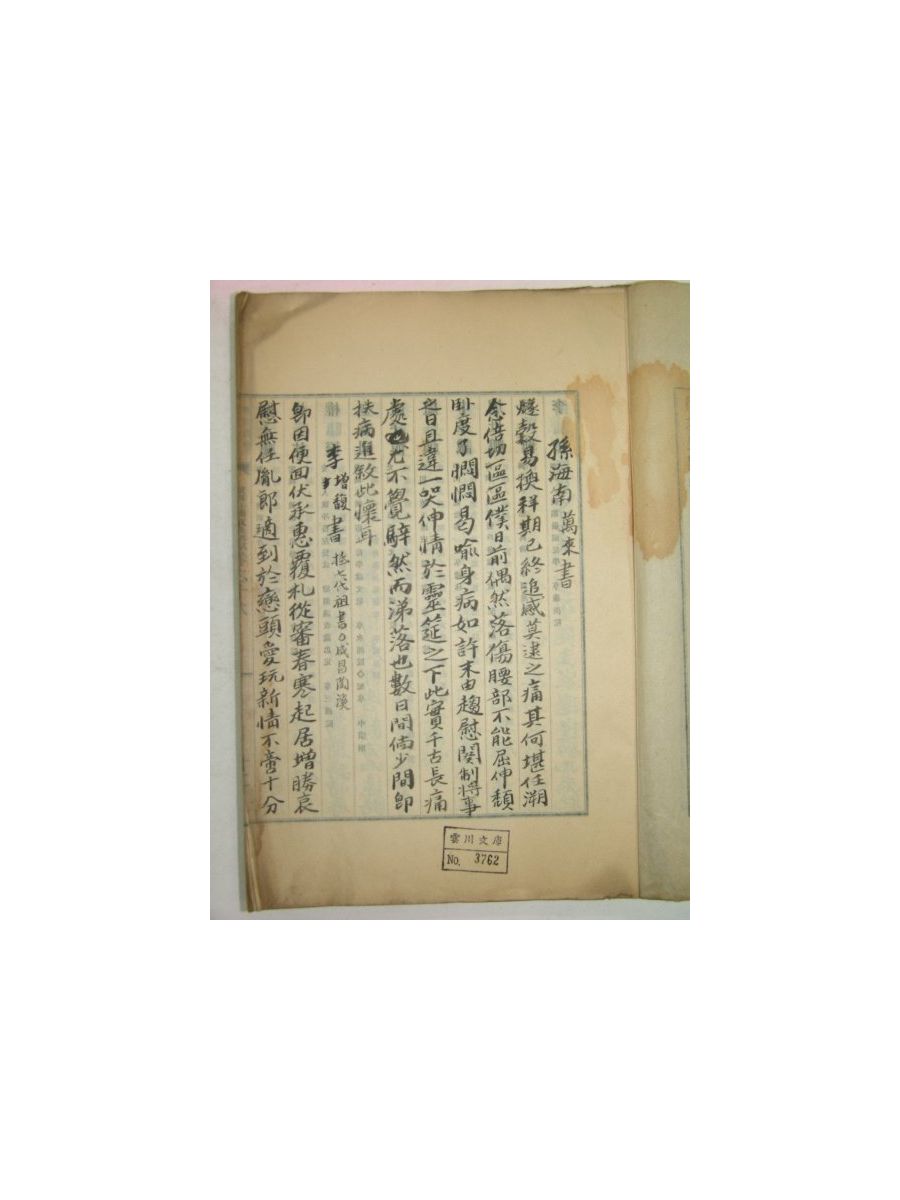 孫海南萬來書
燧穀易換祥期已終追感莫逮之痛其何堪任溯
念倍切區區僕日前偶然落傷腰部不能屈伸頹
臥度了憫憫曷喩身病如許末由趨慰闋制將事
之日且違一哭伸情於靈筵之下此實千古長痛
處也尤不覺騂然而涕落也數日間倘少間卽
扶病進敘此懷耳
李增馥書 七代祖書 咸昌
卽因便面伏承惠覆札從審春寒起居增勝哀
慰無任胤郎適到於戀頭愛玩新情不啻十分
雲川文庫
No. 3762